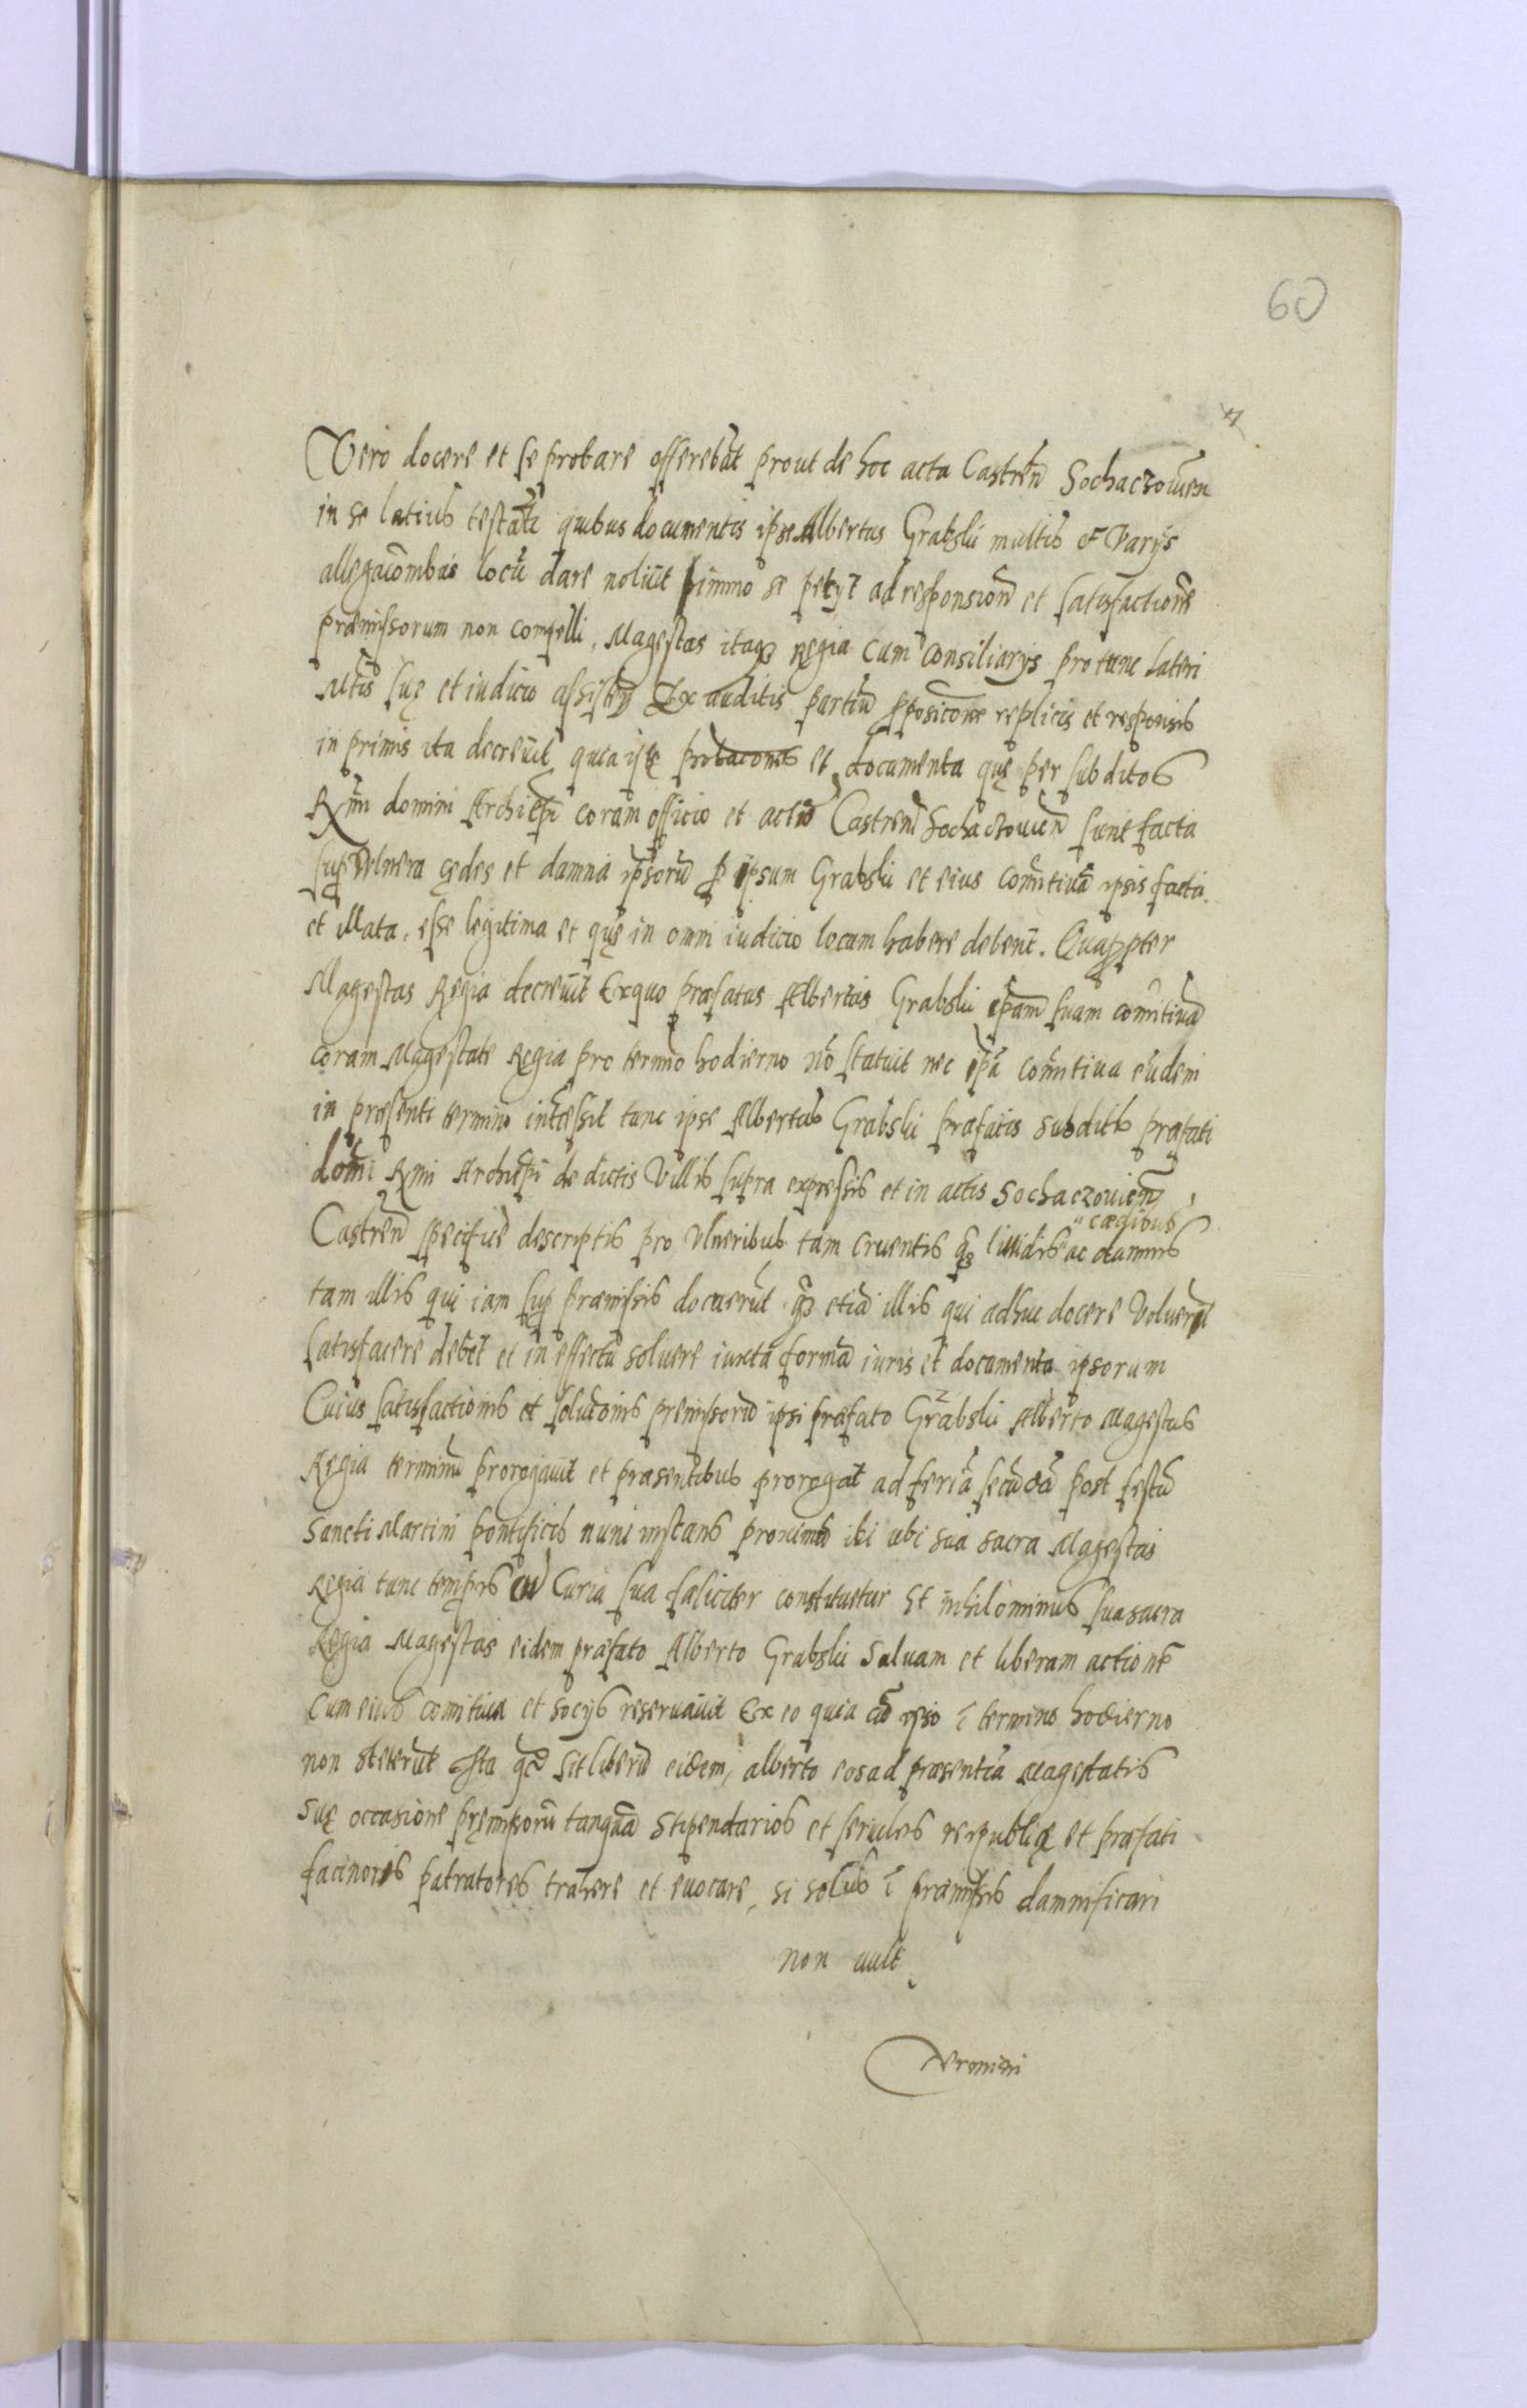 60
Vero docere et se probare offerebāt prout de hoc acta Castreñ Sochaczowieñ
in se latius testāt quibus documentis ipse Albertus Grabski multis et varijs
allegacōnibus locū dare noluit immo se petyt ad responsionē et satisfactionē
præmissorum non compelli. Magestas itaq3 Regia cum consiliarijs pro tunc lateri
Mtis suę et iudicio assisteñ Ex auditis partiū ꝓposicone replicis et responsis
in primis ita decreuit quia istę probaconis et documenta quę per subditos
Rmi domini Archiepi coram officio et actis Castreñ Sochaczouieñ sunt facta
sup vulnera cędes et damna ipsorū ꝑ ipsum Grabski et eius comitiuā ipsis facta
et illata, esse legitima et quę in omni iudicio locum habere debent. Quaꝓpter
Magestas Regia decreuit Ex quo præfatus Albertus Grabski ipam suam comitiuā
coram Magestate Regia pro termīo hodierno nō statuit nec ipā comitiua eūdem
in præsenti termino intercessit tunc ipse Albertus Grabski præfatis subditis præfati
domī Rmi Archiepi de dictis Villis supra expressis et in actis Sochaczouieñ
Castreñ specifice descriptis pro vlneribus tam cruentis q3 liuidis ac damnis
cædibus
tam illis qui iam sup præmissis docuerūt q3 etiā illis qui adhuc docere voluerīt
satisfacere debet et in effectu soluere iuxta formā iuris et documenta ipsorum
Cuius satisfactionis et solucōnis premissorū ipsi præfato Grabski Alberto Magestas
Regia terminū prorogauit et præsentibus prorogat ad feriā secūdā post festū
Sancti Martini pontificis nunc instans proximū ibi ubi sua sacra Magestas
Regia tunc tempris cū Curia sua fæliciter constituetur Et nihilominus sua sacra
Regia Magestas eidem præfato Alberto Grabski saluam et liberam actionē
cum eius comitiua et socijs reseruauit Ex eo quia cū ipso ī termino hodierno
non steterūt Ita qd sit liberū eidem, alberto eos ad præsentiā Magestatis
suę occasione pręmissorū tanquā stipendarios et seruiles reipublicę et præfati
facinoris patratores trahere et euocare, si solus ī præmissis damnificari
non uult